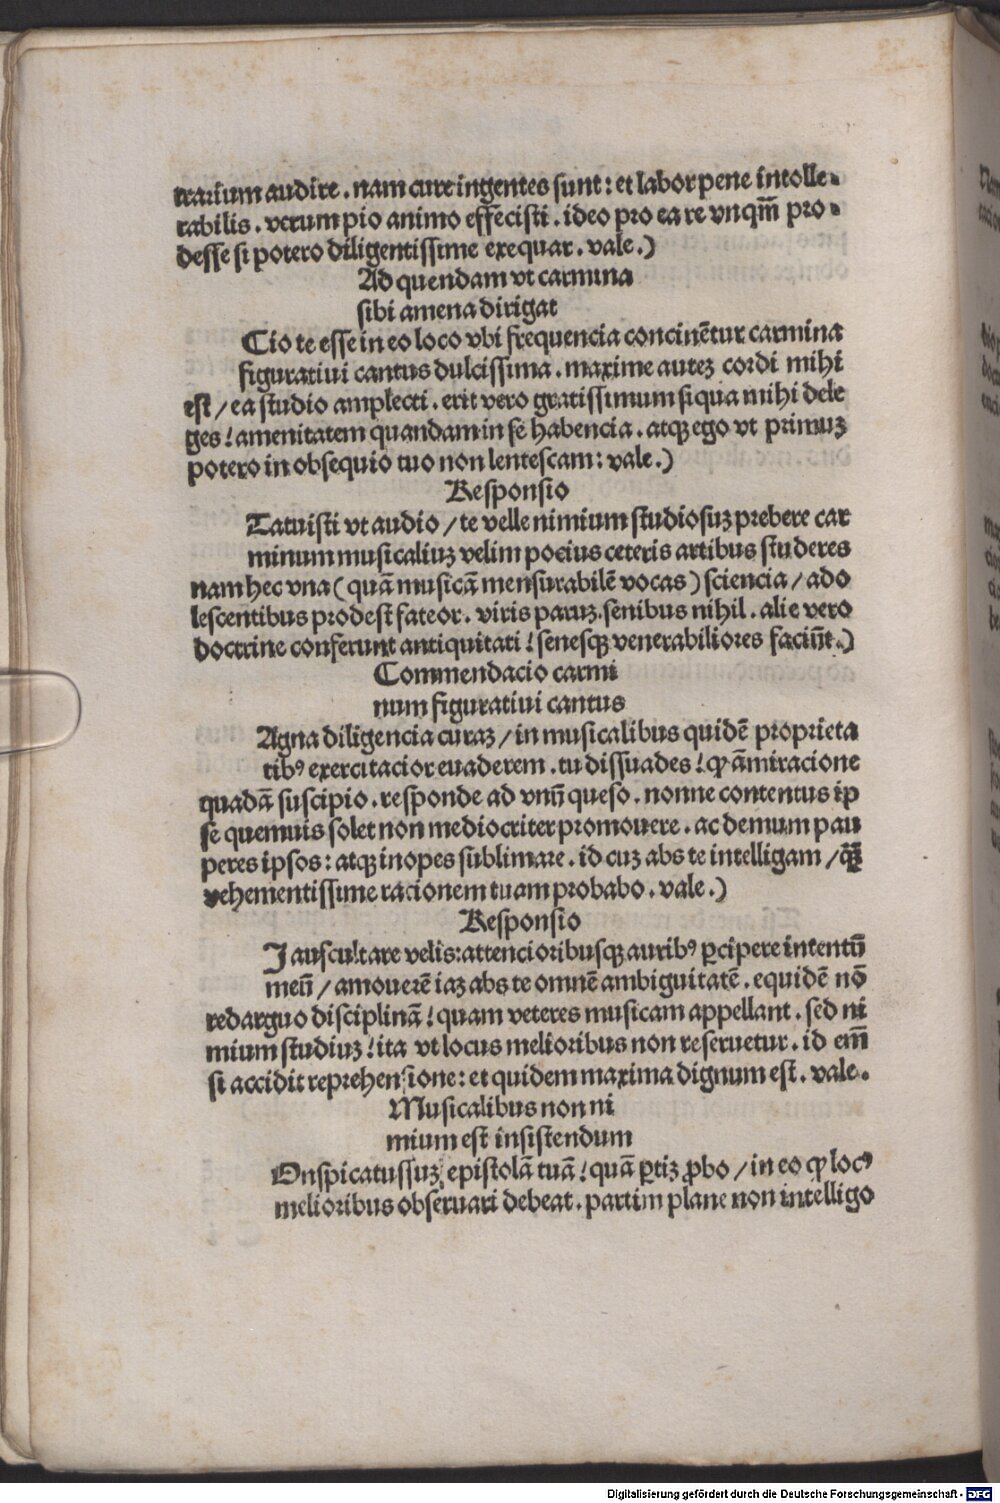 trarium audire . nam cure ingentes sunt : et labor pene intolle-
rabilis . verum pio animo effecisti . ideo pro ea re vnqm̄ pro-
desse si potero diligentissime exequar . vale .)
Ad quendam vt carmina
sibi amena dirigat
Cio te esse in eo loco vbi frequencia concinētur carmina
figuratiui cantus dulcissima . maxime auteꝫ cordi mihi
est / ea studio amplecti . erit vero gratissimum si qua mihi dele
ges ! amenitatem quandam in se habencia . atqꝫ ego vt primuꝫ
potero in obsequio tuo non lentescam : vale .)
Responsio
Tatuisti vt audio / te velle nimium studiosuꝫ prebere car
minum musicaliuꝫ velim pocius ceteris artibus studeres
nam hec vna ( quā musicā mensurabilē vocas ) sciencia / ado
lescentibus prodest fateor . viris paruꝫ . senibus nihil . alie vero
doctrine conferunt antiquitati ! senesqꝫ venerabiliores faciūt .)
Commendacio carmi
num figuratiui cantus
Agna diligencia curaꝫ / in musicalibus quidē proprieta
tibꝰ exercitacior euaderem . tu dissuades ! ꝙ āmiracione
quadā suscipio . responde ad vnū queso . nonne contentus ip
se quemuis solet non mediocriter promouere . ac demum pau
peres ipsos : atqꝫ inopes sublimare . id cuꝫ abs te intelligam / qꝫ̄
vehementissime racionem tuam probabo . vale .)
Responsio
I auscultare velis : attencioribusqꝫ auribꝰ ꝑcipere intentū
meū / amouerē iaꝫ abs te omnē ambiguitatē . equidē nō
redarguo disciplinā ! quam veteres musicam appellant . sed ni
mium studiuꝫ ! ita vt locus melioribus non reseruetur . id em̄
si accidit reprehensione : et quidem maxima dignum est . vale .
Musicalibus non ni
mium est insistendum
Onspicatus suꝫ epistolā tuā ! quā ꝑtiꝫ ꝓbo / in eo ꝙ locꝰ
melioribus obseruari debeat . partim plane non intelligo
Digitalisierung gefördert durch die Deutsche Forschungsgemeinschaft - DFG